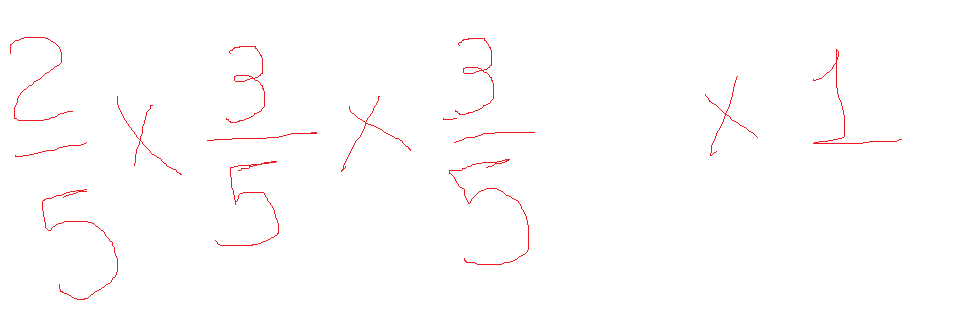 2/5 × 3/5 × 3/5 × 1